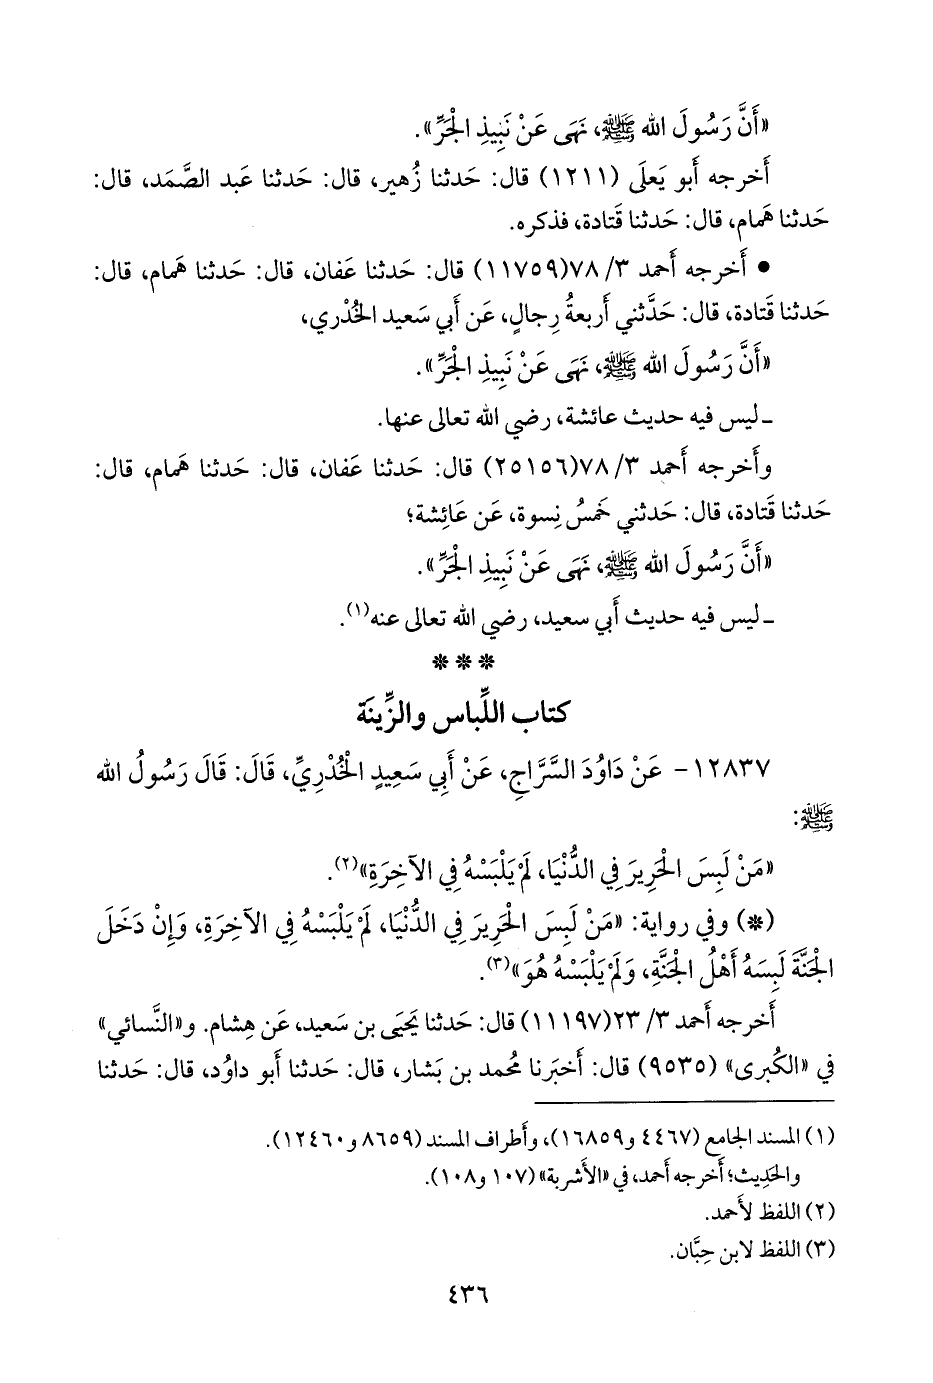 «أَنَّ رَسُولَ الله ﷺ، نَهَى عَنْ نَبِيذِ الجَرِّ».
أَخرجه أَبو يَعلَى (١٢١١) قال: حَدثنا زُهير، قال: حَدثنا عَبد الصَّمَد، قال:
حَدثنا هَمام، قال: حَدثنا قَتادة، فذكره.
• أَخرجه أَحمد ٣/ ٧٨(١١٧٥٩) قال: حَدثنا عَفان، قال: حَدثنا هَمام، قال:
حَدثنا قَتادة، قال: حَدَّثني أَربعةُ رِجالٍ، عَن أَبي سَعيد الخُدْري،
«أَنَّ رَسُولَ الله ﷺ، نَهَى عَنْ نَبِيذِ الجَرِّ».
ـ ليس فيه حديث عائشة، رضي الله تعالى عنها.
وأَخرجه أَحمد ٣/ ٧٨(٢٥١٥٦) قال: حَدثنا عَفان، قال: حَدثنا هَمام، قال:
حَدثنا قَتادة، قال: حَدثني خَمسُ نِسوة، عَن عَائِشة؛
«أَنَّ رَسُولَ الله ﷺ، نَهَى عَنْ نَبِيذِ الجَرِّ».
ـ ليس فيه حديث أَبي سعيد، رضي الله تعالى عنه(١).
* * *
كتاب اللِّباس والزِّينَة
١٢٨٣٧- عَنْ دَاوُدَ السَّرَّاجِ، عَنْ أَبِي سَعِيدٍ الخُدْرِيِّ، قَالَ: قَالَ رَسُولُ الله
ﷺ:
«مَنْ لَبِسَ الحَرِيرَ فِي الدُّنْيَا، لَمْ يَلْبَسْهُ فِي الآخِرَةِ»(٢).
(*) وفي رواية: «مَنْ لَبِسَ الحَرِيرَ فِي الدُّنْيَا، لَمْ يَلْبَسْهُ فِي الآخِرَةِ، وَإِنْ دَخَلَ
الجَنَّةَ لَبِسَهُ أَهْلُ الجَنَّةِ، وَلَمْ يَلْبَسْهُ هُوَ»(٣).
أَخرجه أَحمد ٣/ ٢٣(١١١٩٧) قال: حَدثنا يَحيَى بن سَعيد، عَن هِشام. و«النَّسائي»
في «الكُبرى» (٩٥٣٥) قال: أَخبَرنا مُحمد بن بَشار، قال: حَدثنا أَبو داوُد، قال: حَدثنا
(١) المسند الجامع (٤٤٦٧ و١٦٨٥٩)، وأَطراف المسند (٨٦٥٩ و١٢٤٦٠).
والحَدِيث؛ أَخرجه أَحمد، في «الأَشربة» (١٠٧ و١٠٨).
(٢) اللفظ لأَحمد.
(٣) اللفظ لابن حِبَّان.
٤٣٦